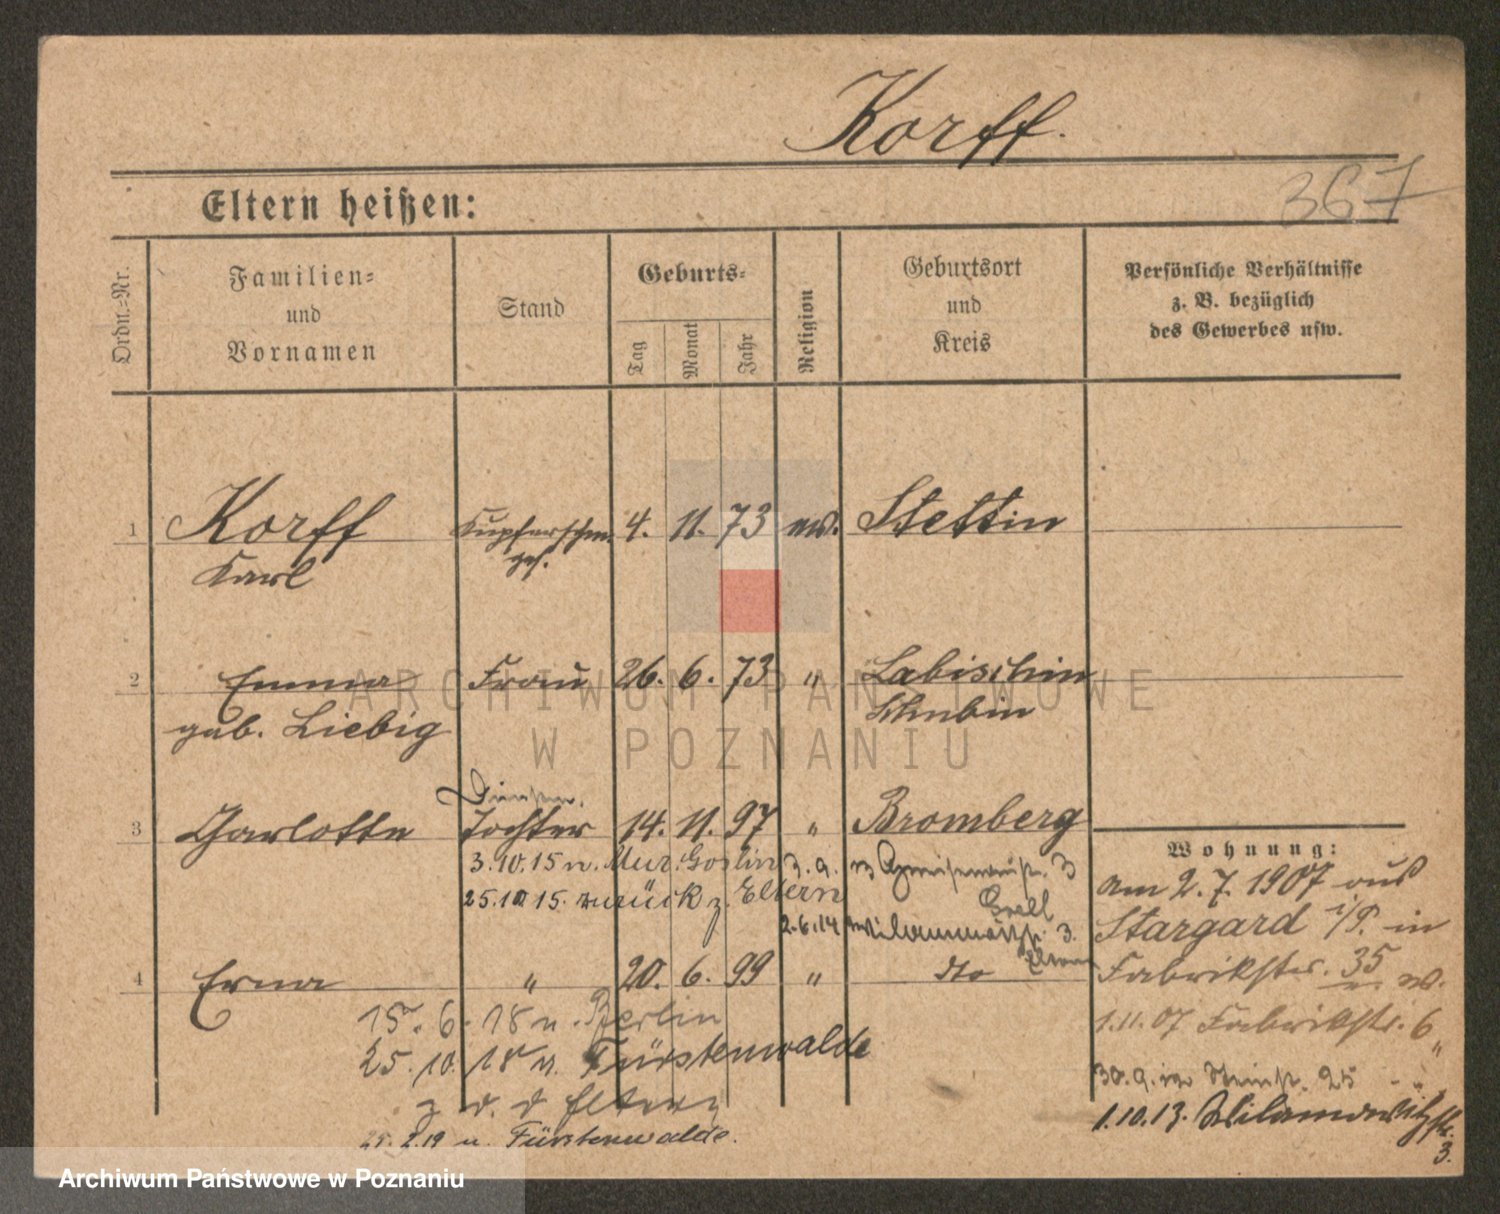 Korff.
367
Eltern heißen:
Ordn.-Nr.
Familien-
und
Vornamen
Stand
Geburts-
Tag
Monat
Jahr
Religion
Geburtsort
und
Kreis
Persönliche Verhältnisse
z. B. bezüglich
des Gewerbes usw.
1 Korff Kupferschm. 4. 11. 73 ev. Stettin
Karl ges.
2 Emma Frau 26. 6. 73 " Labischin
geb. Liebig Schubin
3 Charlotte Tochter 14. 11. 97 " Bromberg
3.10.15 n. Mur. Goslin
25.10.15. zurück z. Eltern
3.9. 13 Gneisenaustr. 3
2.6.14 3.
4 Erna " 20. 6. 99 " dto
15. 6. 18 n. Berlin
25. 10. 18 n. Fürstenwalde
z. d. d Eltern
2.19 n. Fürstenwalde.
Wohnung:
am 2.7.1907 aus
Stargard i/P. in
Fabrikstr. 35 w.
1.11.07 Fabrikstr. 6 "
30.9. 25
1.10.13. 
3.
ARCHIWUM PAŃSTWOWE
W POZNANIU
Archiwum Państwowe w Poznaniu